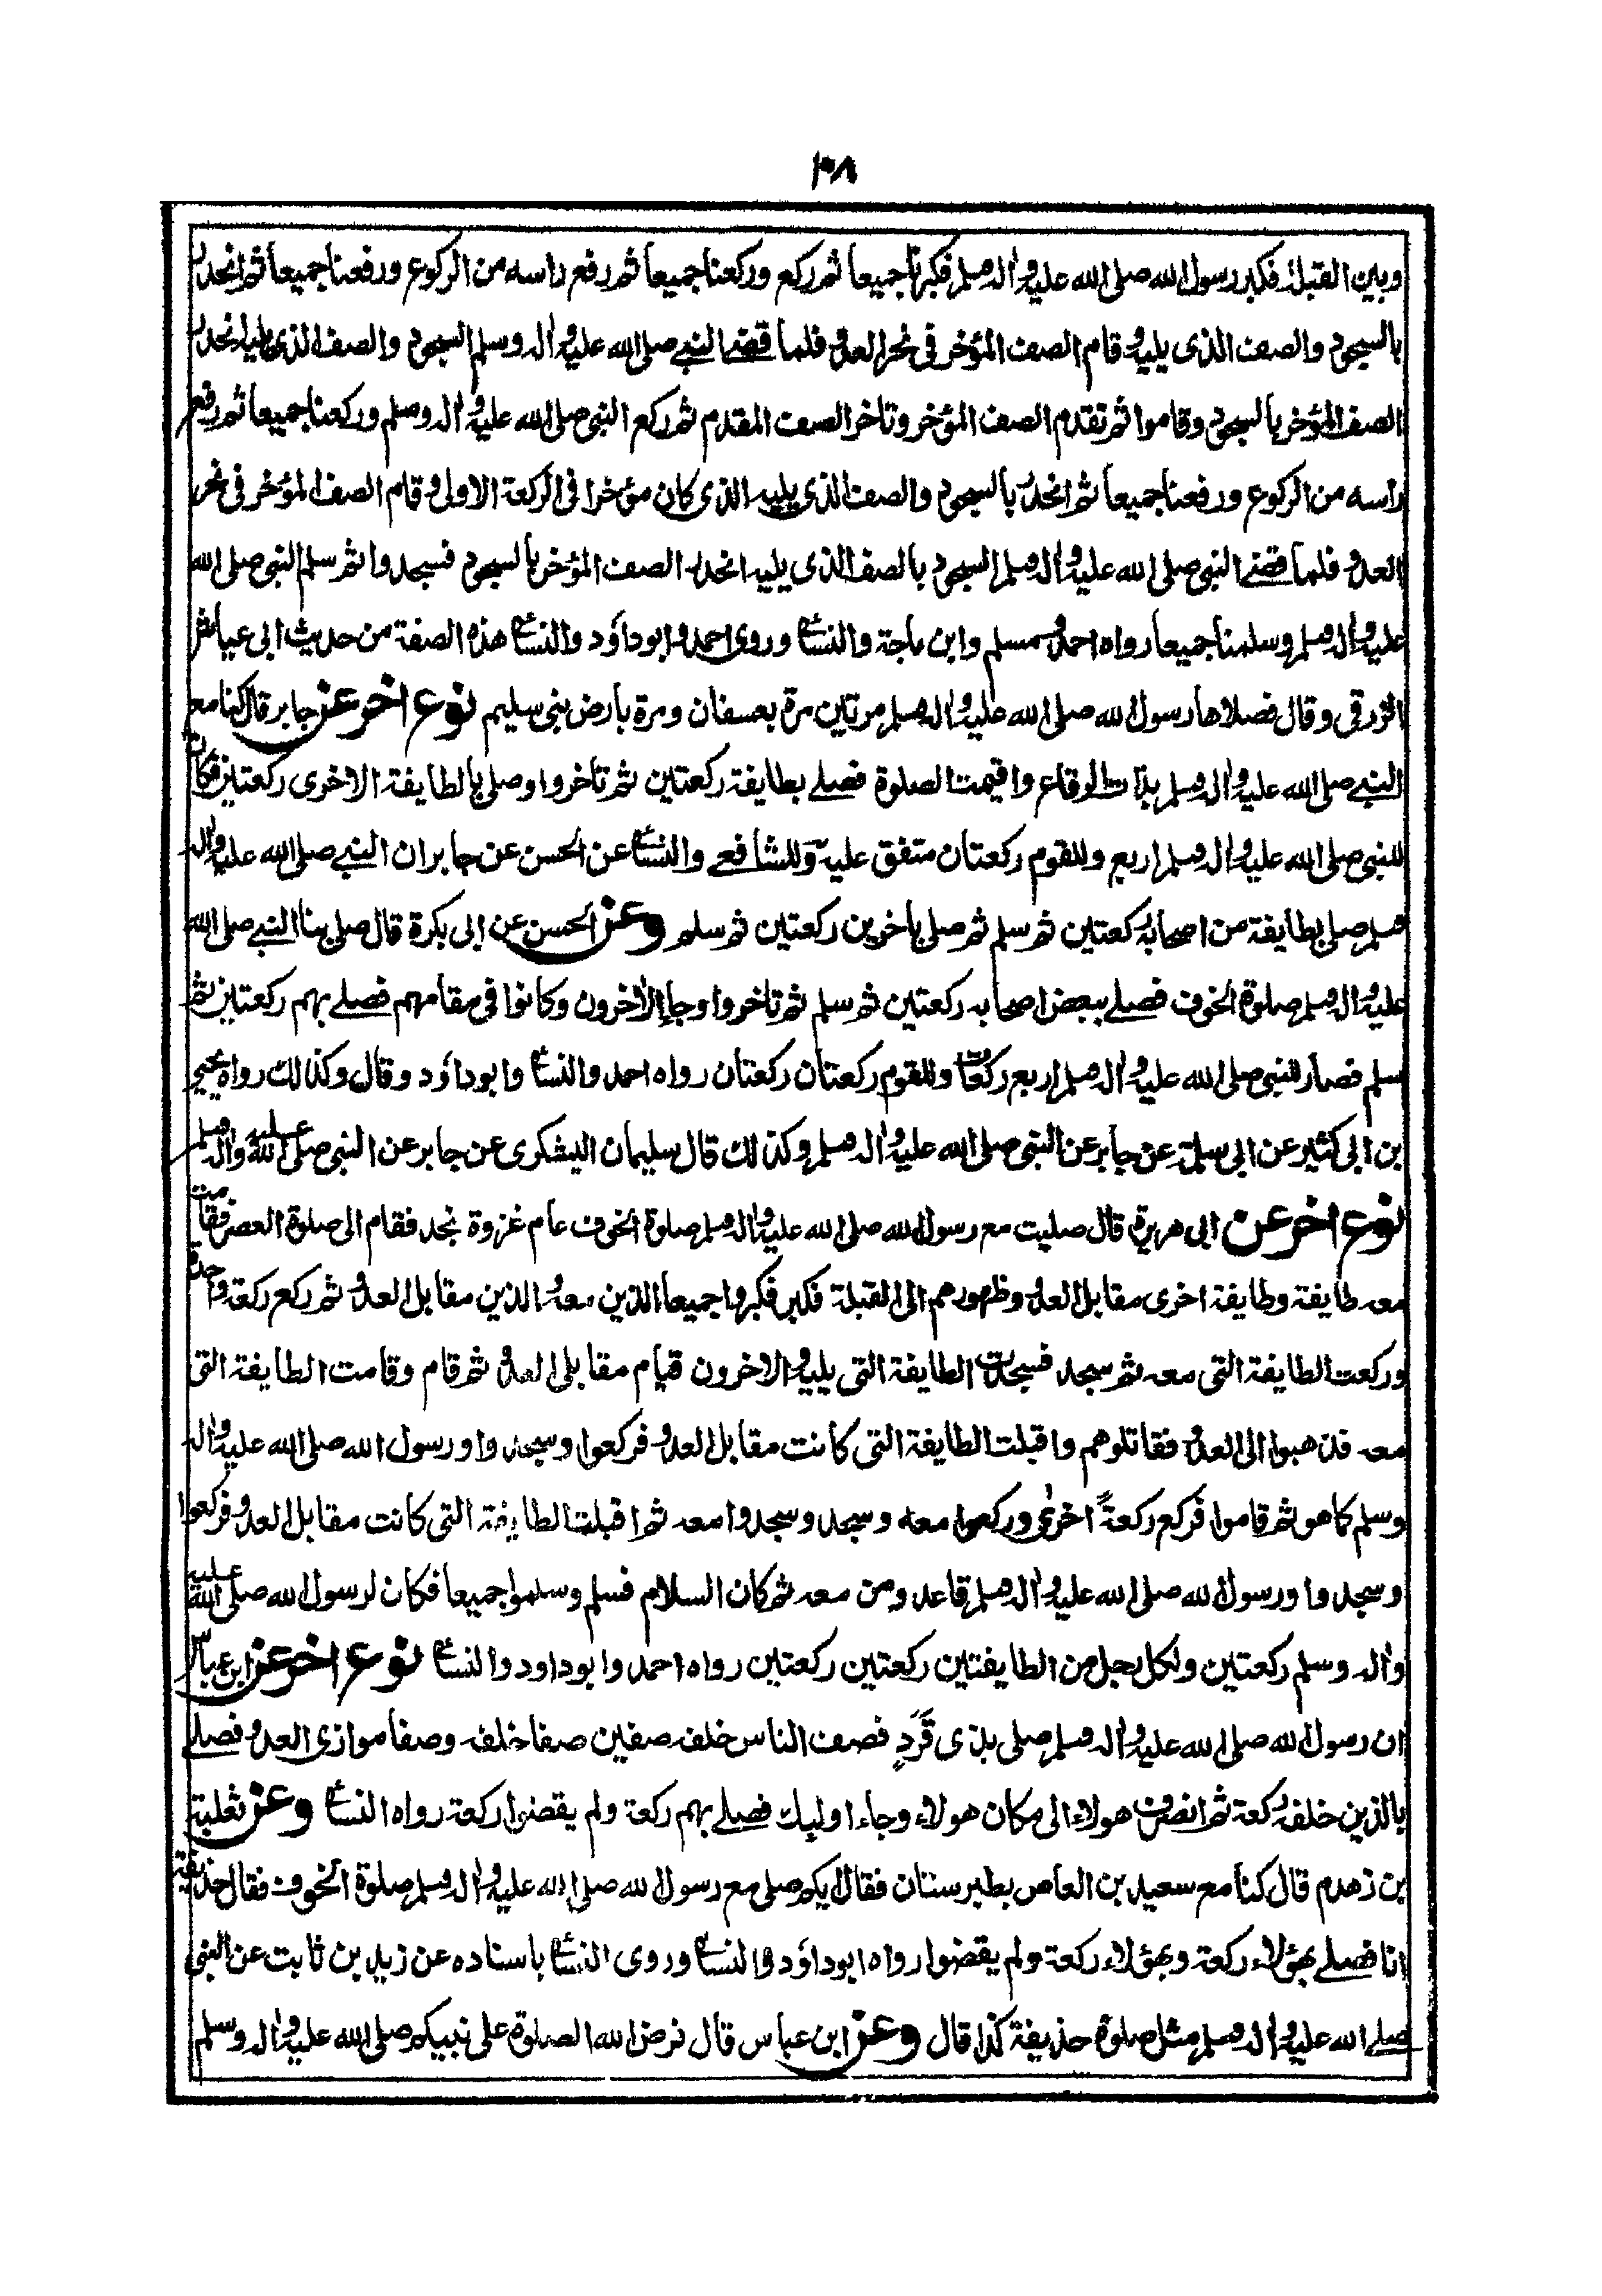 ٢٠٨
وبين القبلة فكبر رسول الله صلى الله عليه واله وسلم فكبرنا جميعا ثم ركع وركعنا جميعا ثم رفع راسه من الركوع ورفعنا جميعا ثم انحدر
بالسجود والصف الذى يليه وقام الصف المؤخر فى نحر العدو فلما قضى النبي صلى الله عليه واله وسلم السجود والصف الذى يليه انحدر
الصف المؤخر بالسجود وقاموا ثم تقدم الصف المؤخر وتاخر الصف المقدم ثم ركع النبى صلى الله عليه واله وسلم وركعنا جميعا ثم رفع
راسه من الركوع ورفعنا جميعا ثم انحدر بالسجود والصف الذى يليه الذى كان مؤخرا فى الركعة الاولى وقام الصف المؤخر فى نحر
العدو فلما قضى النبى صلى الله عليه واله وسلم السجود بالصف الذى يليه انحدر الصف المؤخر بالسجود فسجدوا ثم سلم النبى صلى الله
عليه واله وسلم وسلمنا جميعا رواه احمد ومسلم وابن ماجة والنسائ وروى احمد وابوداؤد والنسائ هذه الصفة من حديث ابى عياش
الزرقى وقال فصلاها رسول الله صلى الله عليه واله وسلم مرتين مرة بعسفان ومرة بارض بنى سليم نوع اخر عن جابر قال كنا مع
النبي صلى الله عليه واله وسلم بذات الرقاع واقيمت الصلوة فصلى بطايفة ركعتين ثم تاخروا وصلى بالطايفة الاخرى ركعتين فكان
للنبى صلى الله عليه واله وسلم اربع وللقوم ركعتان متفق عليه وللشافعي والنسائ عن الحسن عن جابر ان النبي صلى الله عليه واله
وسلم صلى بطايفة من اصحابه ركعتين ثم سلم ثم صلى باخرين ركعتين ثم سلم وعن الحسن عن ابى بكرة قال صلى بنا النبي صلى الله
عليه واله وسلم صلوة الخوف فصلى ببعض اصحابه ركعتين ثم سلم ثم تاخروا وجاء الاخرون وكانوا فى مقامهم فصلى بهم ركعتين ثم
سلم فصار للنبى صلى الله عليه واله وسلم اربع ركعات وللقوم ركعتان ركعتان رواه احمد والنسائ وابوداؤد وقال وكذالك رواه يحيى
بن ابى كثير عن ابى سلمة عن جابر عن النبى صلى الله عليه واله وسلم وكذلك قال سليمان اليشكرى عن جابر عن النبى صلى الله عليه واله وسلم
نوع اخر عن ابى هريرة قال صليت مع رسول الله صلى الله عليه واله وسلم صلوة الخوف عام غزوة نجد فقام الى صلوة العصر فقامت
معه طايفة وطايفة اخرى مقابل العدو وظهورهم الى القبلة فكبر فكبروا جميعا الذين معه والذين مقابل العدو ثم ركع ركعة واحدة
وركعت الطايفة التى معه ثم سجد فسجدت الطايفة التى يليه والاخرون قيام مقابلى العدو ثم قام وقامت الطايفة التى
معه فذهبوا الى العدو فقاتلوهم واقبلت الطايفة التى كانت مقابل العدو فركعوا وسجدوا ورسول الله صلى الله عليه واله
وسلم كما هو ثم قاموا فركع ركعة اخرى وركعوا معه وسجد وسجدوا معه ثم اقبلت الطايفة التى كانت مقابل العدو فركعوا
وسجدوا ورسول الله صلى الله عليه واله وسلم قاعد ومن معه ثم كان السلام فسلم وسلموا جميعا فكان لرسول الله صلى الله عليه
واله وسلم ركعتين ولكل رجل من الطايفتين ركعتين ركعتين رواه احمد وابوداود والنسائ نوع اخر عن ابن عباس
ان رسول الله صلى الله عليه واله وسلم صلى بذى قرد فصف الناس خلفه صفين صفا خلفه وصفا موازى العدو فصلى
بالذين خلفه ركعة ثم انصرف هولاء الى مكان هولاء وجاء اوليك فصلى بهم ركعة ولم يقضوا ركعة رواه النسائ وعن ثعلبة
بن زهدم قال كنا مع سعيد بن العاص بطبرستان فقال ايكم صلى مع رسول الله صلى الله عليه واله وسلم صلوة الخوف فقال حذيفة
انا فصلى بهؤلاء ركعة وبهؤلاء ركعة ولم يقضوا رواه ابوداؤد والنسائ وروى النسائ باسناده عن زيد بن ثابت عن النبى
صلى الله عليه واله وسلم مثل صلوة حذيفة كذا قال وعن ابن عباس قال فرض الله الصلوة على نبيكم صلى الله عليه واله وسلم